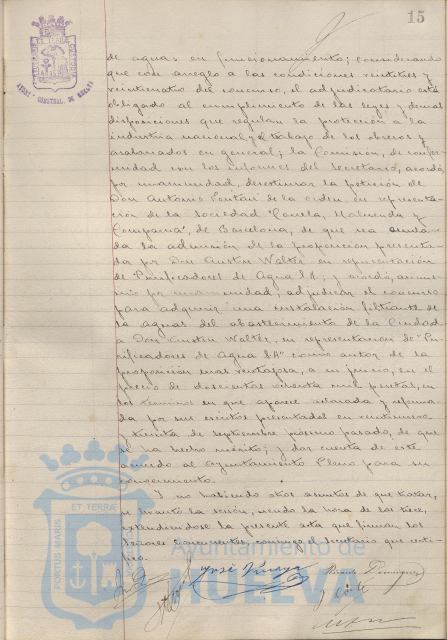 15
de aguas en funcionamiento; considerando
que con arreglo a las condiciones veintitres y
veinticuatro del concurso, el adjudicatario está
obligado al cumplimiento de las leyes y demas
disposiciones que regulan la protección a la
industria nacional y el trabajo de los obreros y
asalariados en general; la Comisión, de confor-
midad con los informes del Secretario, acordó,
por unanimidad, desestimar la petición de
Don Antonio de la Orden, en representa-
ción de la Sociedad "Canela, Maluenda y
Compañia", de Barcelona, de que sea anula-
da la admisión de la proposición presenta-
da por Don Austen Walter en representación
de Purificadores de Agua S.A.; y acordó,
por unanimidad; adjudicar el concurso
para adquirir una instalación filtrante de
las aguas del abastecimiento de la Ciudad
a Don Austen Walter, en representación de "Pu-
rificadores de Agua S.A" como autor de la
proposición mas ventajosa, a su juicio, en el
precio de doscientas ochenta mil pesetas, en
los terminos en que aparece aclarada y reforma-
da por sus escritos presentados en veintinueve
y treinta de septiembre proximo pasado, de que
se ha hecho mérito; y dar cuenta de este
acuerdo al Ayuntamiento Pleno para su
conocimiento.
Y no habiendo otros asuntos de que tratar,
se levantó la sesión, siendo la hora de las trece,
extendiendose la presente acta que firman los
Señores Concurrentes, conmigo el Secretario que certi-
fico.
José
Ricardo Dominguez
y Corté
PORTUS MARIS ET TERRAE
Ayuntamiento de
HUELVA